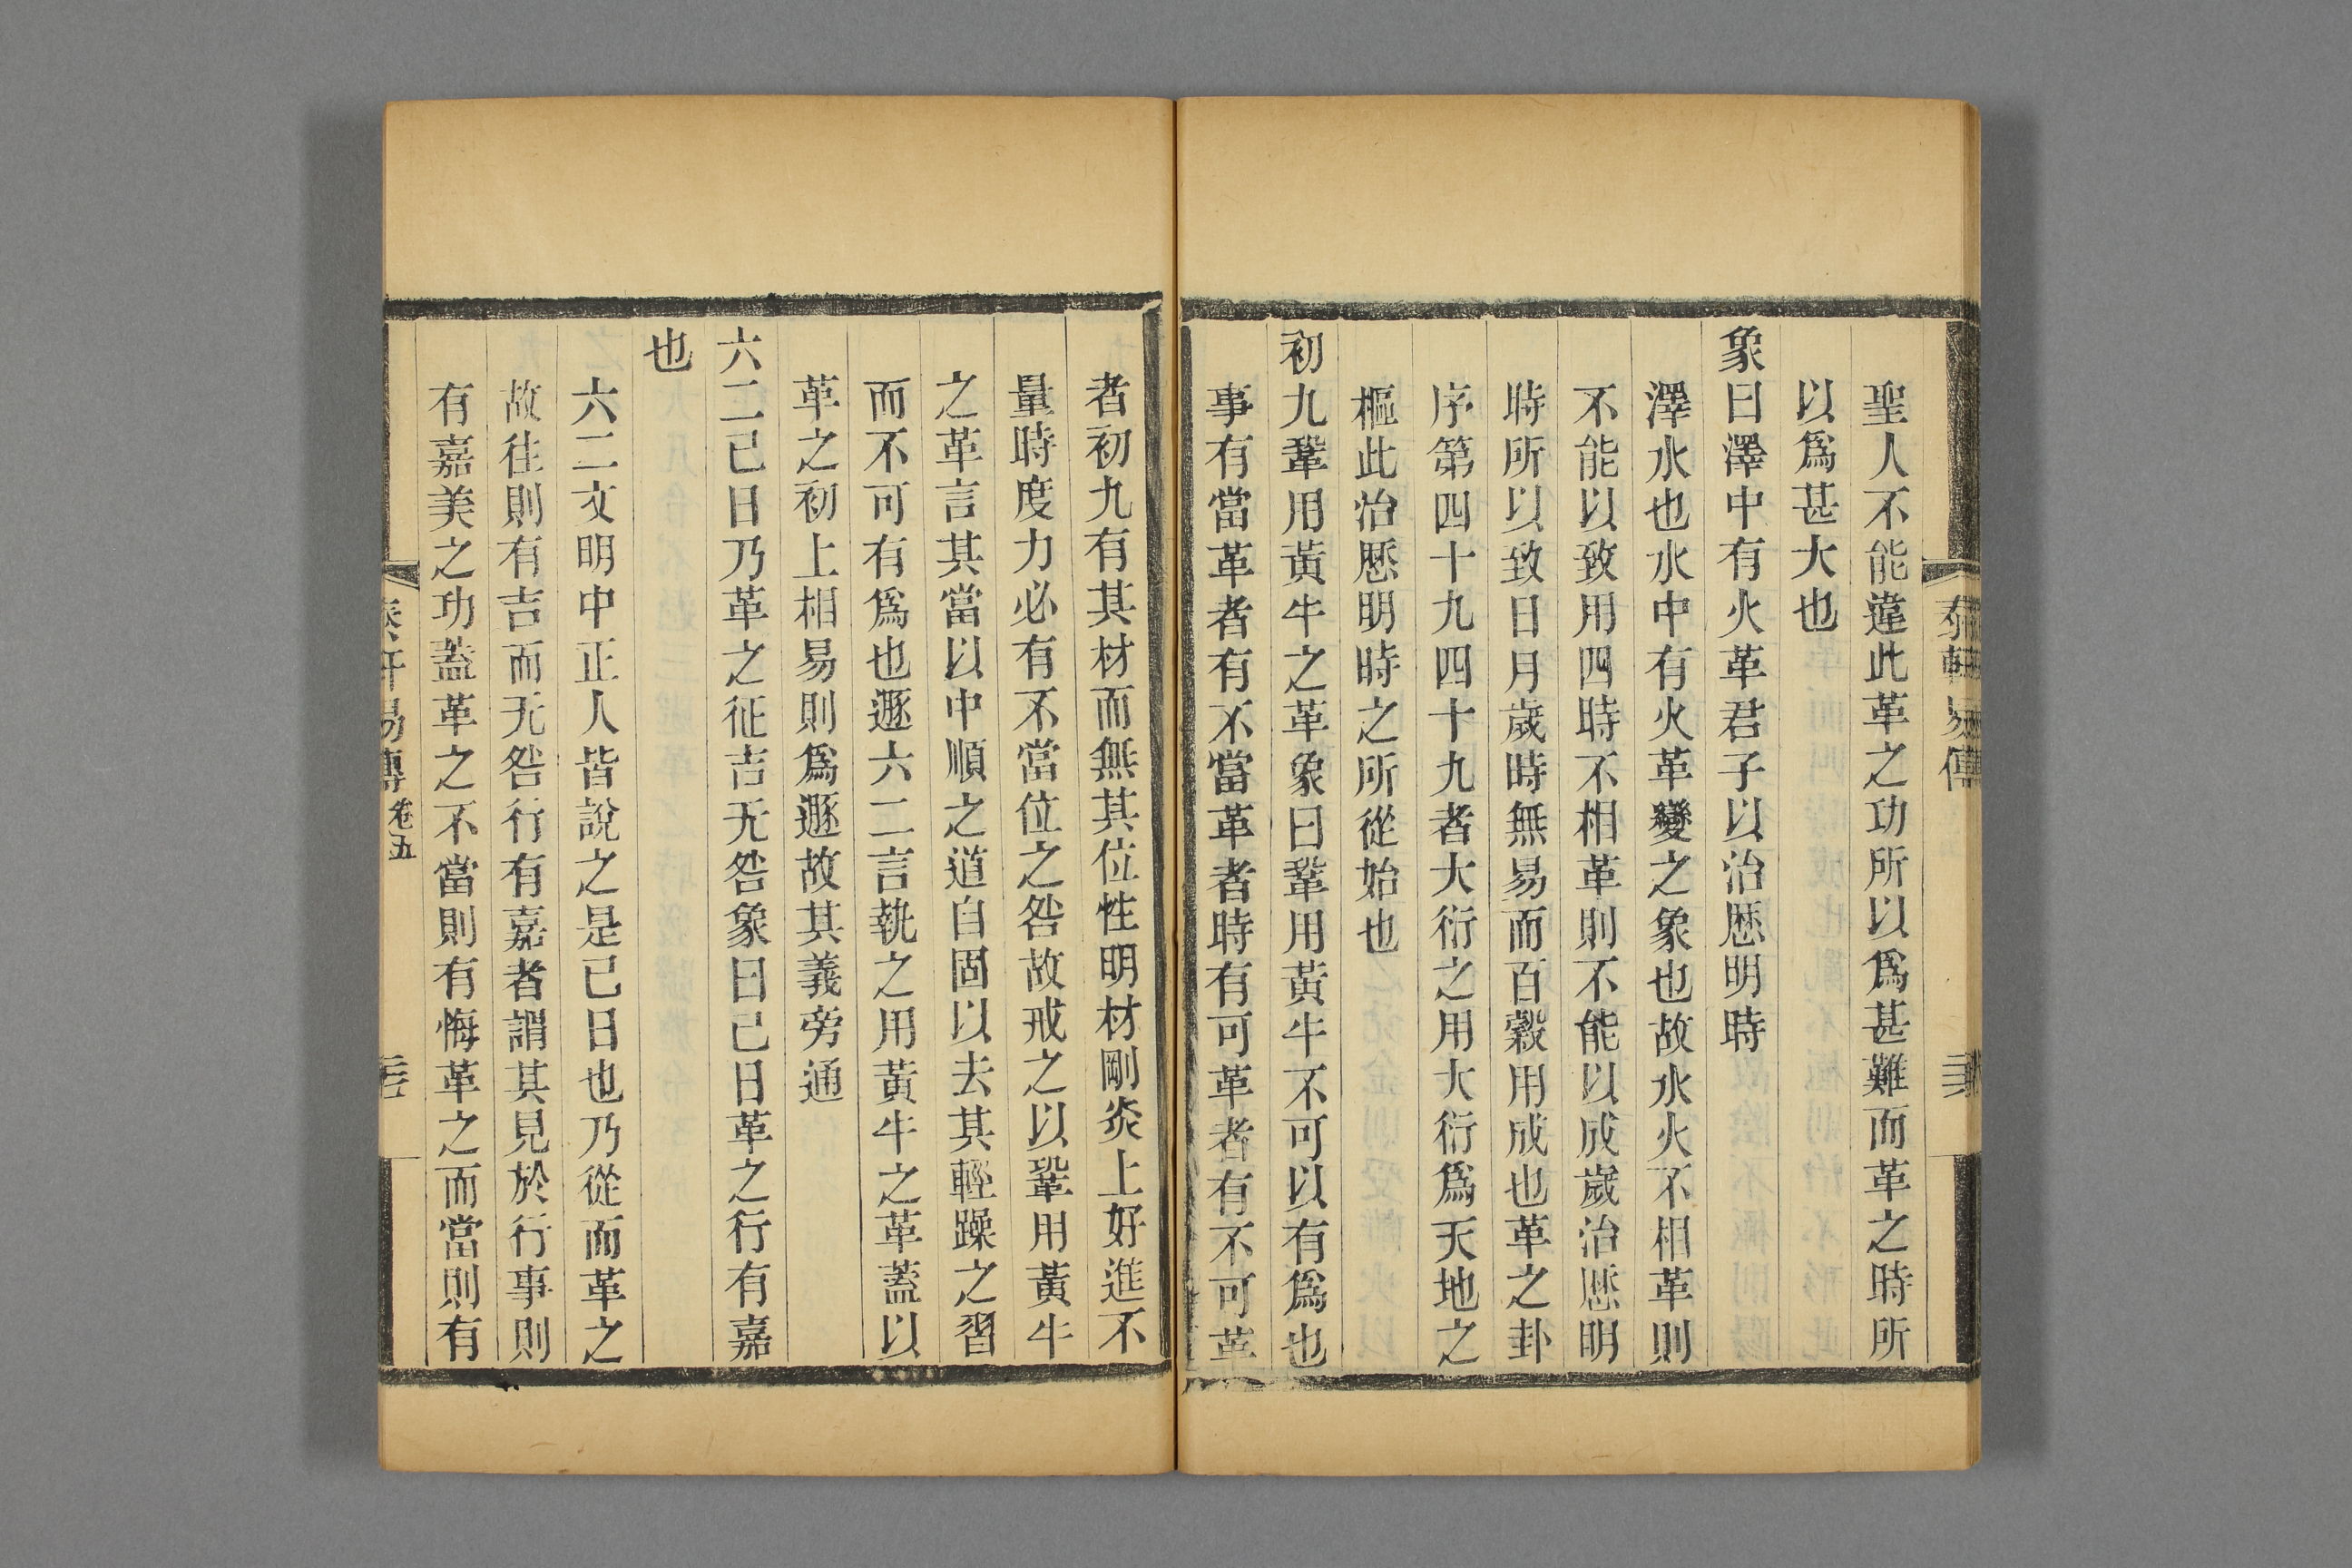 聖人不能違此革之功所以爲甚難而革之時所
以爲甚大也
象曰澤中有火革君子以治厯明時
澤水也水中有火革變之象也故水火不相革則
不能以致用四時不相革則不能以成歲治厯明
時所以致日月歲時無易而百穀用成也革之卦
序第四十九四十九者大衍之用大衍爲天地之
樞此治厯明時之所從始也
初九鞏用黃牛之革象曰鞏用黃牛不可以有爲也
事有當革者有不當革者時有可革者有不可革
者初九有其材而無其位性明材剛炎上好進不
量時度力必有不當位之咎故戒之以鞏用黃牛
之革言其當以中順之道自固以去其輕躁之習
而不可有爲也遯六二言執之用黃牛之革蓋以
革之初上相易則爲遯故其義旁通
六二已日乃革之征吉无咎象曰已日革之行有嘉
也
六二文明中正人皆說之是已日也乃從而革之
故往則有吉而无咎行有嘉者謂其見於行事則
有嘉美之功蓋革之不當則有悔革之而當則有
易傳
卷五